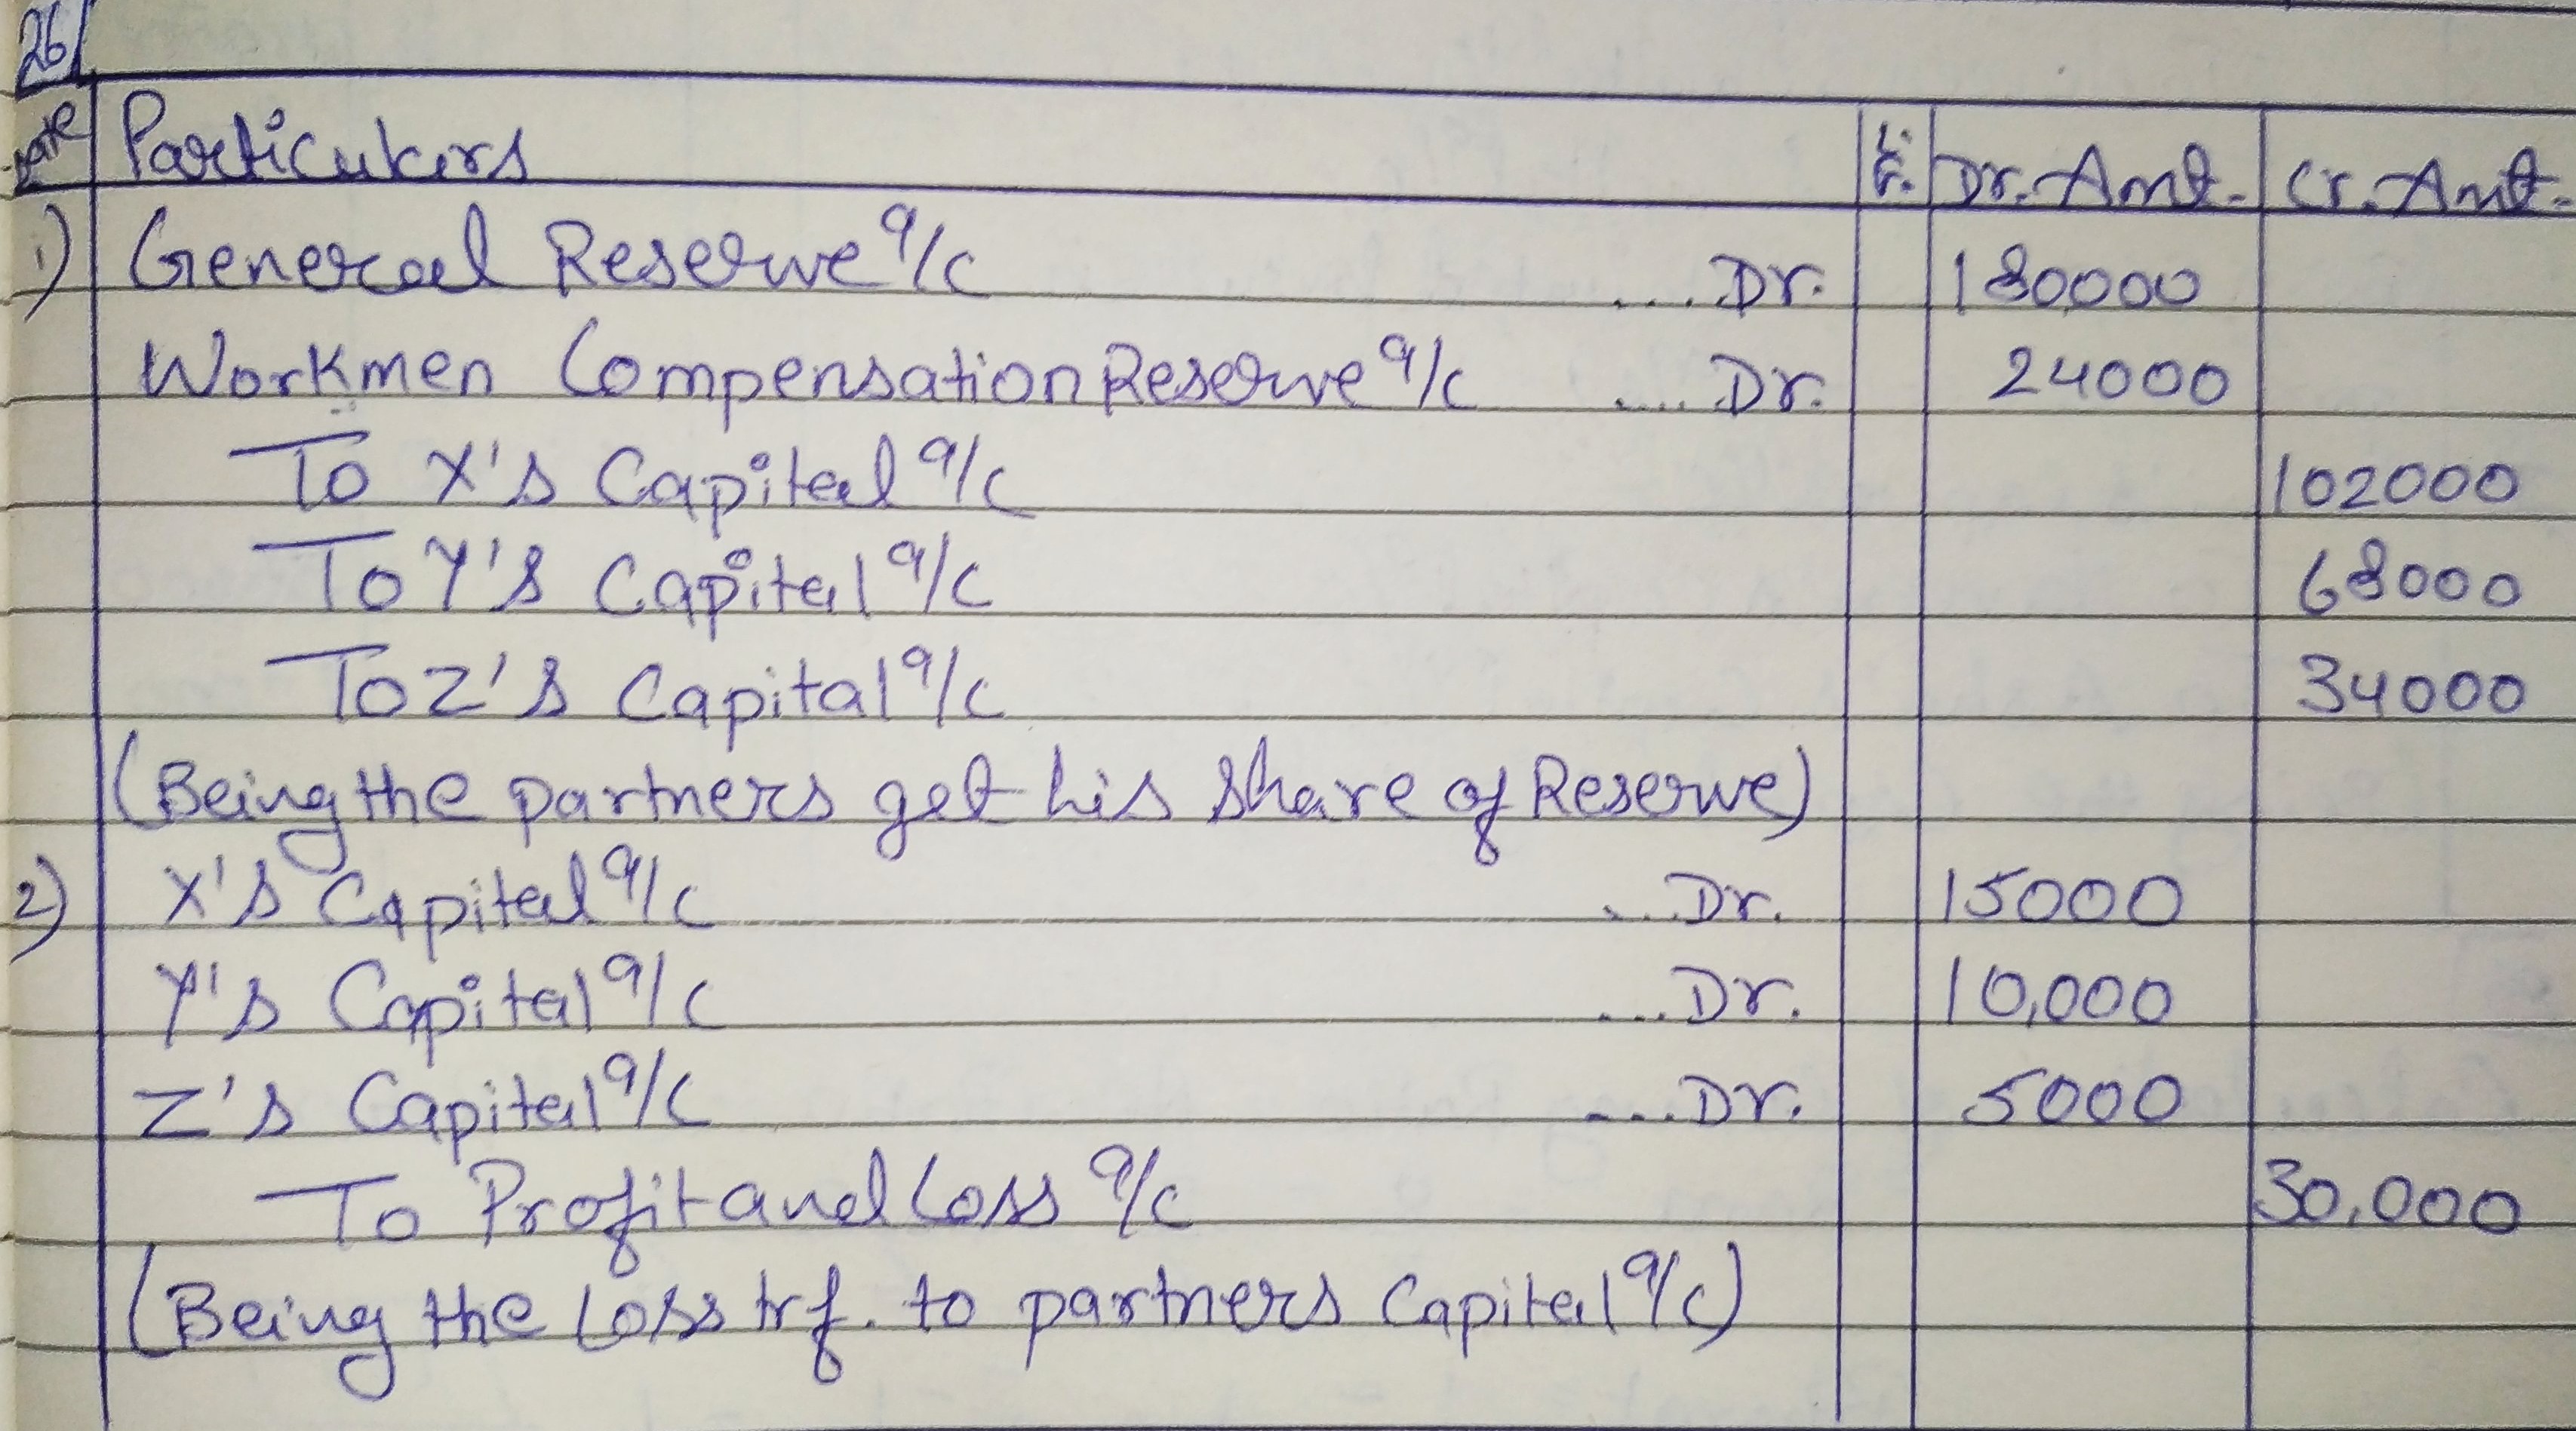 26/
Date Particulars L.F. Dr. Amt. Cr. Amt.
1) General Reserve a/c .... Dr. 180000
Workmen Compensation Reserve a/c .... Dr. 24000
To X's Capital a/c 102000
To Y's Capital a/c 68000
To Z's Capital a/c 34000
(Being the partners get his share of Reserve)
2) X's Capital a/c ... Dr. 15000
Y's Capital a/c ... Dr. 10,000
Z's Capital a/c ... Dr. 5000
To Profit and Loss a/c 30,000
(Being the Loss trf. to partners Capital a/c)